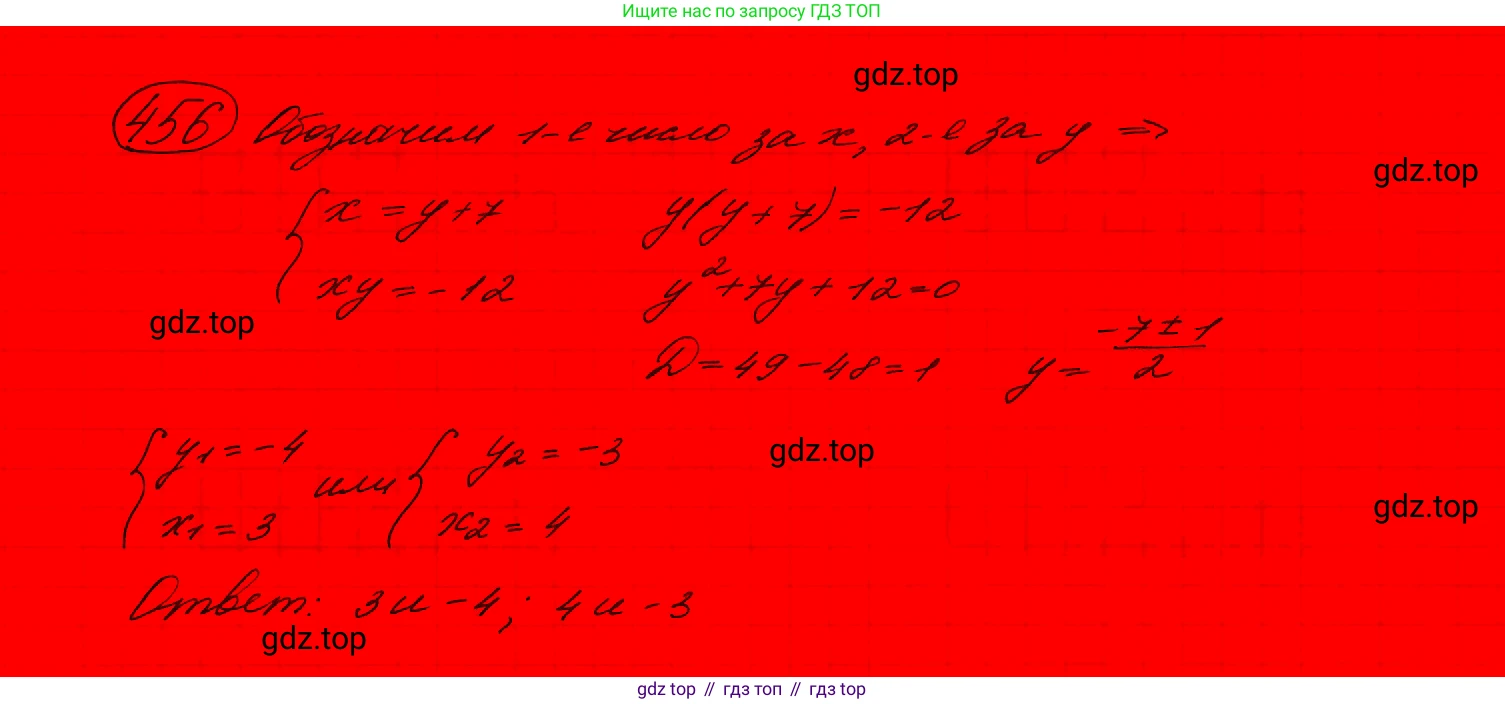 Ищите нас по запросу ГДЗ ТОП
gdz.top
456 Обозначим 1-е число за x, 2-е за y =>
gdz.top
{ x = y + 7 y(y + 7) = -12
xy = -12 y² + 7y + 12 = 0
gdz.top
D = 49 - 48 = 1 y = (-7 ± 1)/2
{ y₁ = -4 или { y₂ = -3
gdz.top
x₁ = 3 x₂ = 4
gdz.top
Ответ: 3 и -4; 4 и -3
gdz.top
gdz top // гдз топ // гдз top